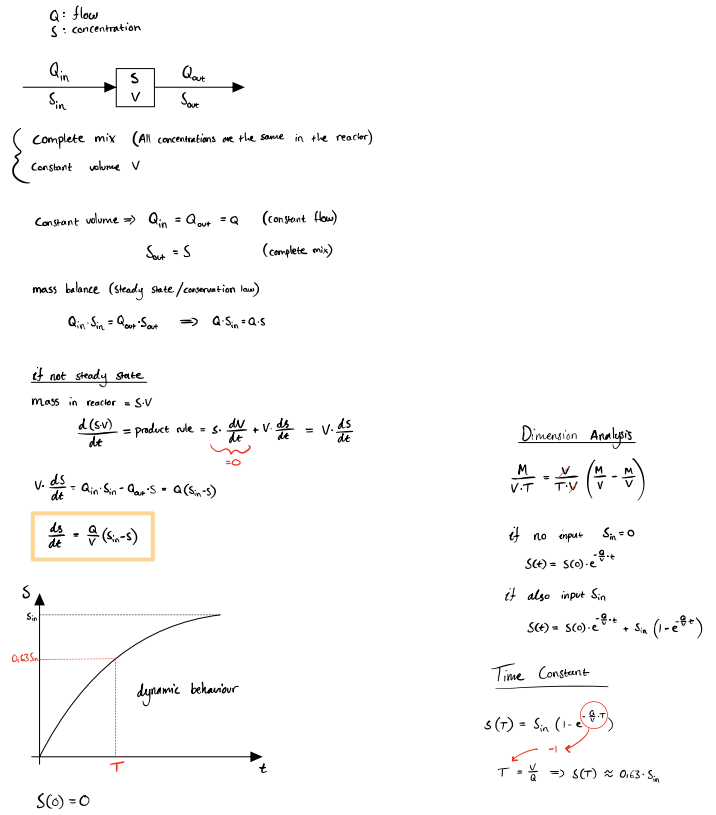 Q: flow
S: concentration
Q_in Q_out
S V
S_in S_out
Complete mix (All concentrations are the same in the reactor)
Constant volume V
Constant volume ⇒ Q_in = Q_out = Q (constant flow)
S_out = S (complete mix)
mass balance (steady state/conservation law)
Q_in·S_in = Q_out·S_out ⇒ Q·S_in = Q·S
if not steady state
Mass in reactor = S·V
d(S·V)/dt = product rule = S·dV/dt + V·dS/dt = V·dS/dt
=0
V·dS/dt = Q_in·S_in - Q_out·S = Q(S_in-S)
dS/dt = Q/V (S_in-S)
S
S_in
0,63S_in
dynamic behaviour
T
t
S(0) = 0
Dimension Analysis
M/(V·T) = V/(T·V) (M/V - M/V)
if no input S_in = 0
S(t) = S(0)·e^(-Q/V·t)
if also input S_in
S(t) = S(0)·e^(-Q/V·t) + S_in (1-e^(-Q/V·t))
Time Constant
S(T) = S_in (1-e^(-Q/V·T))
-1
T = V/Q ⇒ S(T) ≈ 0,63·S_in